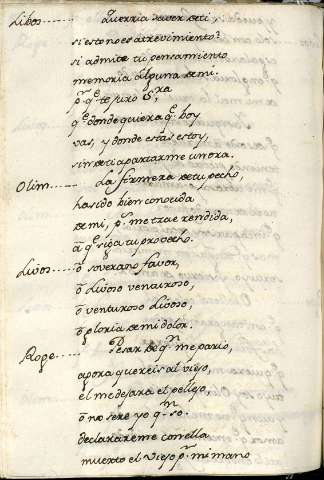 Libos...... Querria saver de ti,
si esto no es atrevimiento?
si admite tu pensamiento
memoria alguna de mi.
p.r q.e te juro S.ra
q.e donde quiera q.e hoy
vas, y donde estas estoy,
sin de ti apartarme un ora.
Olim...... La firmeza de tu pecho,
ha sido bien conocida
de mi, p.r me trae rendida,
a q.e siga tu provecho.
Livos...... o soverano favor,
o Livoso venturoso,
o venturoso Livoso,
o gloria de mi dolor.
Roge...... Pesar de q.n me pario,
agora quereis al viejo,
el me dejara el pellejo,
o no sere yo q.n so.
declarareme con ella
muerto el Viejo p.r mi mano